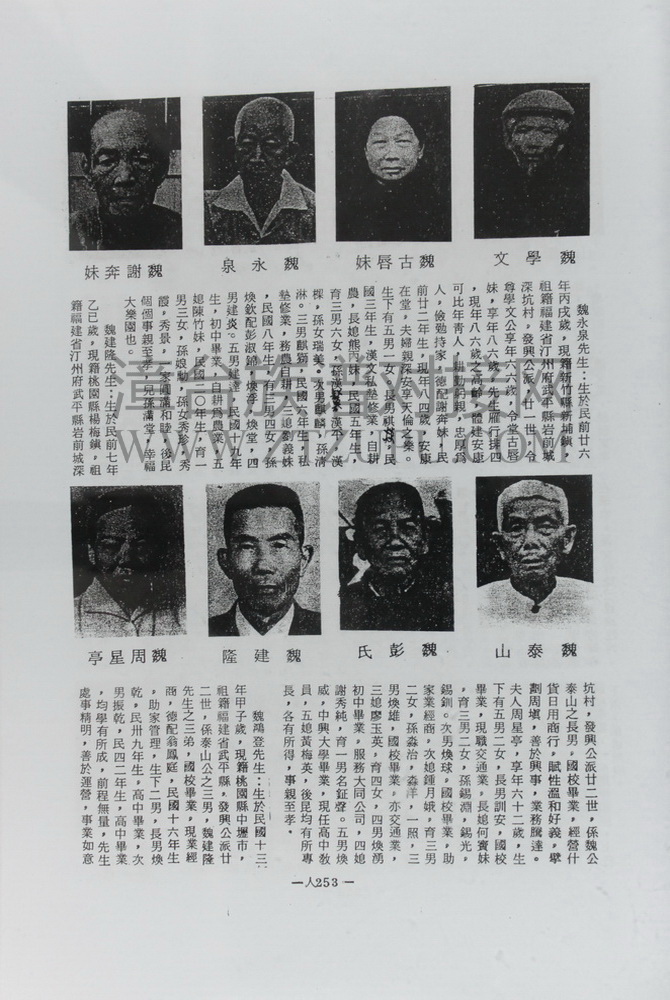 魏學文
魏古唇妹
魏永泉
魏謝奔妹
魏永泉先生：生於民前廿六
年丙戌歲，現籍新竹縣新埔鎮，
祖籍福建省汀州府武平縣岩前城
深坑村，發興公派廿一世，令
尊學文公享年六六歲，令堂古唇
妹，享年八六歲，先生雁排四
，現年八六之高齡，體健安康
可比年青人，勤力親，忠厚為
人，儉勤持家，德配謝奔妹，民
前廿二年生，現年八四歲，安康
在堂，夫婦親深安享天倫之樂。
生下有五男一女，長男，民
國三年生，漢文私塾修業，自耕
農，長媳熊丙妹，民國五年生，
育三男六女，孫漢，漢文，漢
樑，孫女瑞美。次男麒麟，孫清
淋。三男麒獅，民國六年生，私
塾修業，務農自耕，三媳劉義妹
，民國八年生，有三男四女，孫
煥欽配彭淑錦，煥浮，煥堂，四
男建炎。五男建達，民國十九年
生，初中畢業，自耕為農業，五
媳陳竹妹，民國二〇年生，育一
男三女，孫娘勳，孫女秀珍，秀
霞，秀景，一家圓滿和睦，後昆
個個事親至孝，兒孫滿堂，幸福
大樂園也。
魏建隆先生：生於民前七年
乙巳歲，現籍桃園縣楊梅鎮，祖
籍福建省汀州府武平縣岩前城深
魏泰山
魏彭氏
魏建隆
魏周星亭
坑村，發興公派廿二世，係魏公
泰山之長男，國校畢業，經營什
貨日用商行，賦性溫和好義，擘
劃周塡，善於興事，業務騰達。
夫人周星亭，享年六十二歲，生
下有五男二女，長男訓安，國校
畢業，現職交通業，長媳何賣妹
，育三男二女，孫錫淵，錫光，
錫釧。次男煥球。國校畢業，助
家業經商。次媳鍾月娥，育三男
二女，孫淼治，淼洋，一照，三
男煥雄，國校畢業，亦交通業，
三媳廖玉英，育四女，四男煥湧
初中畢業，服務大同公司，四媳
謝秀純，育一男名鉦聲。五男煥
威，中興大學畢業，現任高中教
員，五媳黃梅英，後昆均有所專
長，各有所得，事親至孝。
魏鴻登先生：生於民國十三
年甲子歲，現籍桃園縣中壢市，
祖籍福建省武平縣，發興公派廿
二世，係泰山公之三男，魏建隆
先生之三弟，國校畢業，現業經
商，德配翁鳳庭，民國十六年生
，助家管理，生下二男，長男煥
乾，民卅九年生，高中畢業，次
男振乾，民四二年生，高中畢業
，均學有所成，前程無量，先生
處事精明，善於運營，事業如意
—人253—
漳台族譜对接网